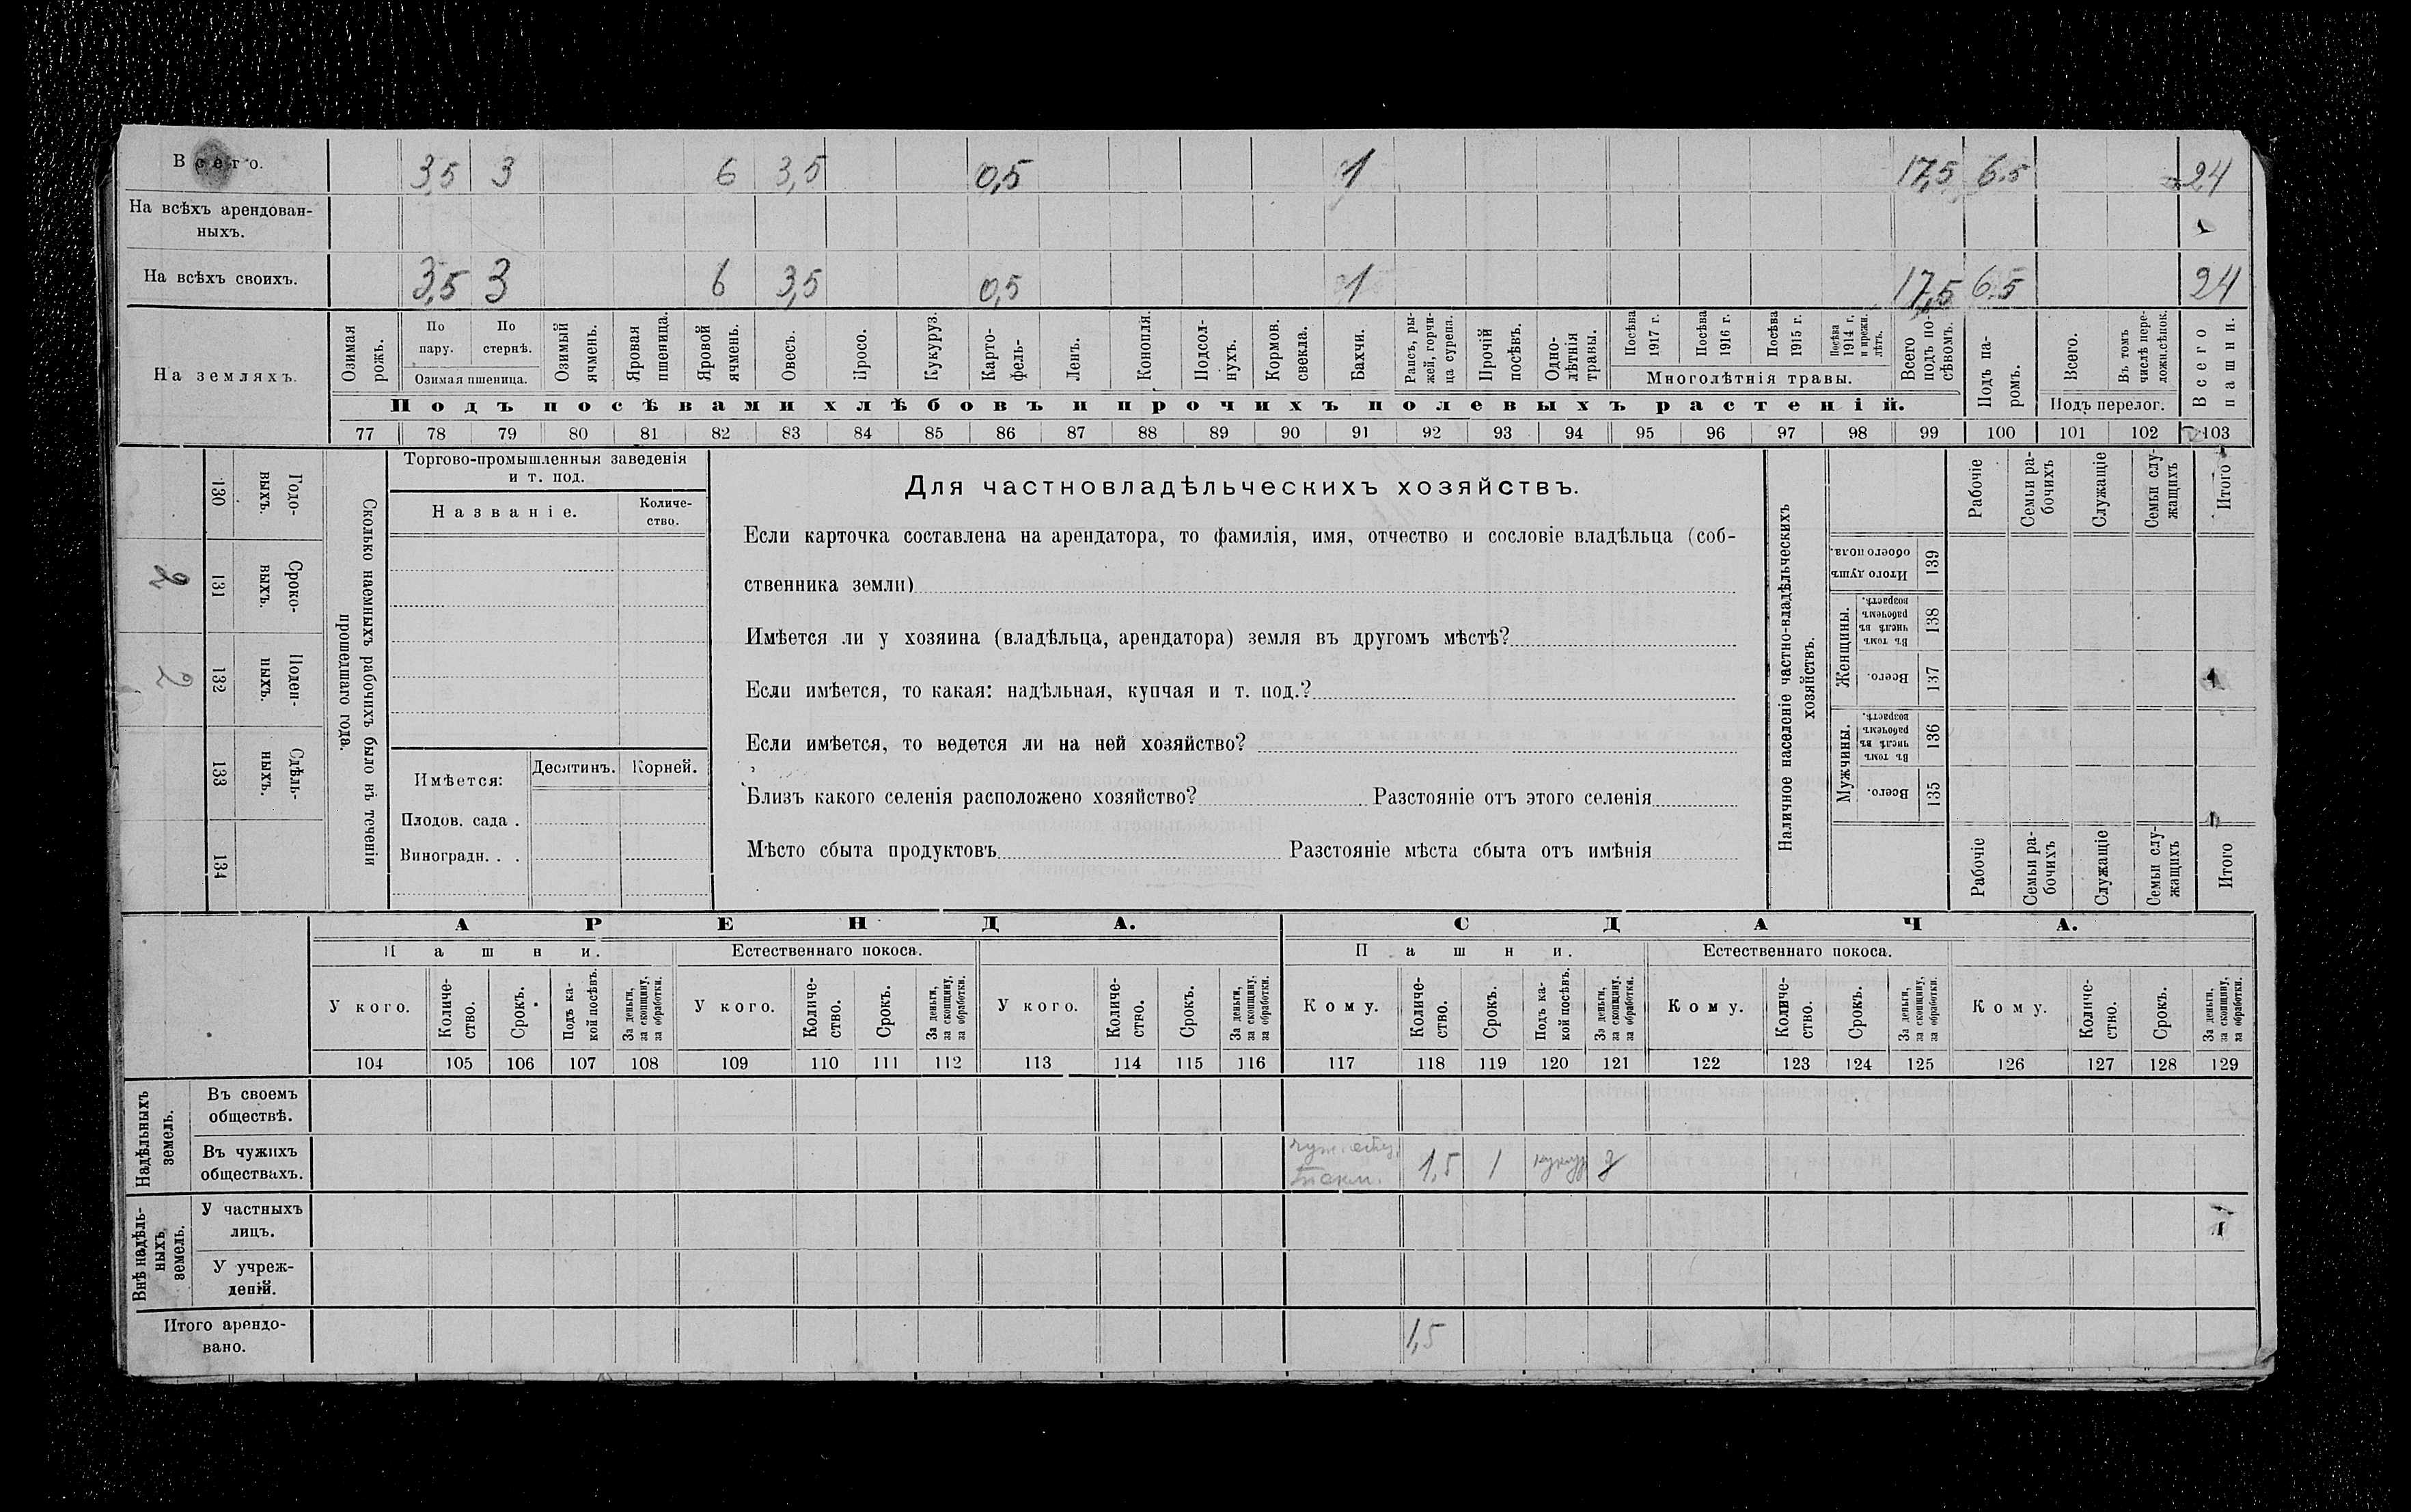 Всего. 3,5 3 6 3,5 0,5 1 17,5 6.5 24
На всѣхъ арендован-
ныхъ.
На всѣхъ своихъ. 3,5 3 6 3,5 0,5 1 17,5 6.5 24
На земляхъ.
Озимая рожь.
По пару.
По стернѣ.
Озимая пшеница.
Озимый ячмень.
Яровая пшеница.
Яровой ячмень.
Овесъ.
Просо.
Кукуруз.
Карто-
фель-
Ленъ.
Конопля.
Подсол-
нухъ.
Кормов.
свекла.
Бахчи.
Рапсъ, ры-
жей, горчи-
ца сурепа.
Прочій
посѣвъ.
Одно-
лѣтнія
травы.
Посѣва
1917 г.
Посѣва
1916 г.
Посѣва
1915 г.
Посѣва
1914 г.
и прежн.
лѣтъ.
Многолѣтнія травы.
Всего
подъ по-
сѣвомъ.
Подъ па-
ромъ.
Всего.
Въ томъ
числѣ пере-
ложн.сѣнок.
Подъ перелог.
Всего
пашни.
Подъ посѣвами хлѣбовъ и прочихъ полевыхъ растеній.
77 78 79 80 81 82 83 84 85 86 87 88 89 90 91 92 93 94 95 96 97 98 99 100 101 102 103
Сколько наемныхъ рабочихъ было въ теченіи
прошедшаго года.
Годо-
выхъ.
130
Сроко-
выхъ.
131
2
Поден-
ныхъ.
132
2
Сдѣль-
ныхъ.
133
134
Торгово-промышленныя заведенія
и т. под.
Названіе.
Количе-
ство.
Имѣется:
Десятинъ. Корней.
Плодов. сада .
Виноградн. . .
Для частновладѣльческихъ хозяйствъ.
Если карточка составлена на арендатора, то фамилія, имя, отчество и сословіе владѣльца (соб-
ственника земли)
Имѣется ли у хозяина (владѣльца, арендатора) земля въ другомъ мѣстѣ?
Если имѣется, то какая: надѣльная, купчая и т. под.?
Если имѣется, то ведется ли на ней хозяйство?
Близъ какого селенія расположено хозяйство? Разстояніе отъ этого селенія
Мѣсто сбыта продуктовъ Разстояніе мѣста сбыта отъ имѣнія
Наличное населеніе частно-владѣльческихъ
хозяйствъ.
Рабочіе
Семьи ра-
бочихъ
Служащіе
Семьи слу-
жащихъ
Итого
Итого душъ
обоего пола.
139
Женщины.
Въ томъ
числѣ въ
рабочемъ
возрастѣ.
138
Всего.
137
Мужчины.
Въ томъ
числѣ въ
рабочемъ
возрастѣ.
136
Всего.
135
Рабочіе
Семьи ра-
бочихъ
Служащіе
Семьи слу-
жащихъ
Итого
АРЕНДА. СДАЧА.
Пашни. Естественнаго покоса. Пашни. Естественнаго покоса.
У кого.
Количе-
ство.
Срокъ.
Подъ ка-
кой посѣвъ.
За деньги,
за скопщину,
за обработки.
У кого.
Количе-
ство.
Срокъ.
За деньги,
за скопщину,
за обработки.
У кого.
Количе-
ство.
Срокъ.
За деньги,
за скопщину,
за обработки.
Кому.
Количе-
ство.
Срокъ.
Подъ ка-
кой посѣвъ.
За деньги,
за скопщину,
за обработки.
Кому.
Количе-
ство.
Срокъ.
За деньги,
за скопщину,
за обработки.
Кому.
Количе-
ство.
Срокъ.
За деньги,
за скопщину,
за обработки.
104 105 106 107 108 109 110 111 112 113 114 115 116 117 118 119 120 121 122 123 124 125 126 127 128 129
Надѣльныхъ
земель.
Въ своемъ
обществѣ.
Въ чужихъ
обществахъ.
1,5 1 кукур д
Внѣ надѣль-
ныхъ
земель.
У частныхъ
лицъ.
У учреж-
деній.
Итого арендо-
вано.
1,5